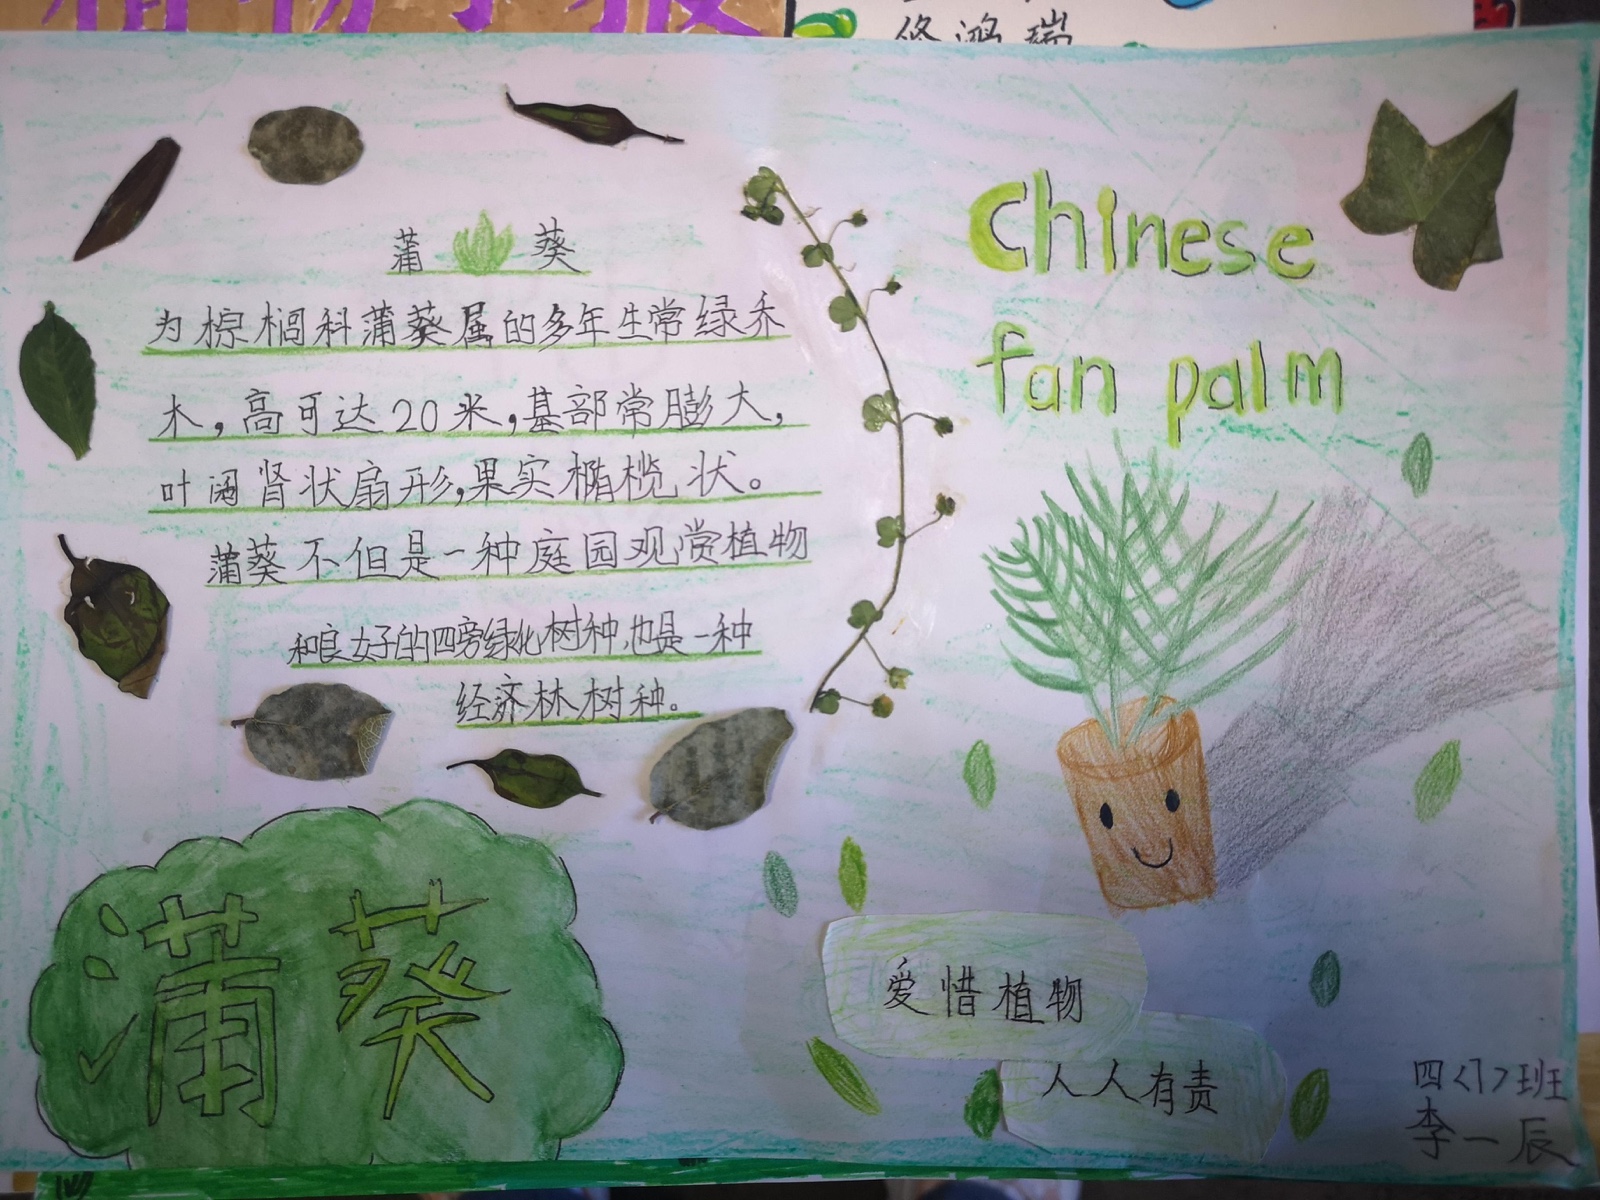 植物小报
佟鸿瑞
蒲葵
为棕榈科蒲葵属的多年生常绿乔
木，高可达20米，基部常膨大，
叶阔肾状扇形，果实橢榄状。
蒲葵不但是一种庭园观赏植物
和良好的四旁绿化树种，也是一种
经济林树种。
Chinese
fan palm
蒲葵
爱惜植物
人人有责
四<1>班
李一辰